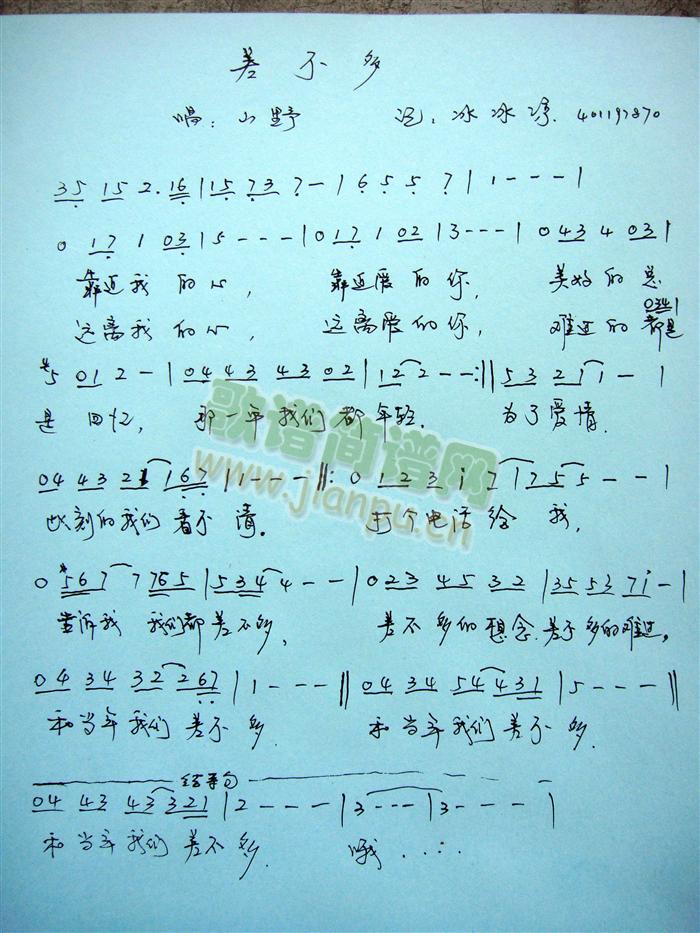 差不多
唱：山野 记：冰冰 401197870
35 15 2. 16 | 15 73 7 - | 6 5 5 7 | 1 - - - |
0 17 1 03 | 5 - - - | 0 17 1 02 | 3 - - - | 0 43 4 03 |
靠近我 的心， 靠近爱的你， 美好的总
远离我 的心， 远离爱的你， 难过的 都是
0341
#5 01 2 - | 04 43 43 02 | 12 2 - - :|| 53 21 1 - |
是 回忆， 那一年我们都年轻. 为了爱情
04 43 21 167 | 1 - - - ||: 0 12 3 i 7 | 1755 - - |
此刻的我们看不清。 打个电话给我，
歌谱简谱网
www.jianpu.cn
0 #567 7 765 | 534 4 - - | 0 23 45 32 | 35 53 7i - |
告诉我 我们都差不多， 差不多的想念.差不多的难过。
04 34 32 267 | 1 - - - || 04 34 54 431 | 5 - - - ||
和当年我们差不多. 和当年我们差不多.
结束句
04 43 43 321 | 2 - - - | 3 - - - | 3 - - - - |
和当年我们差不多. 哦......